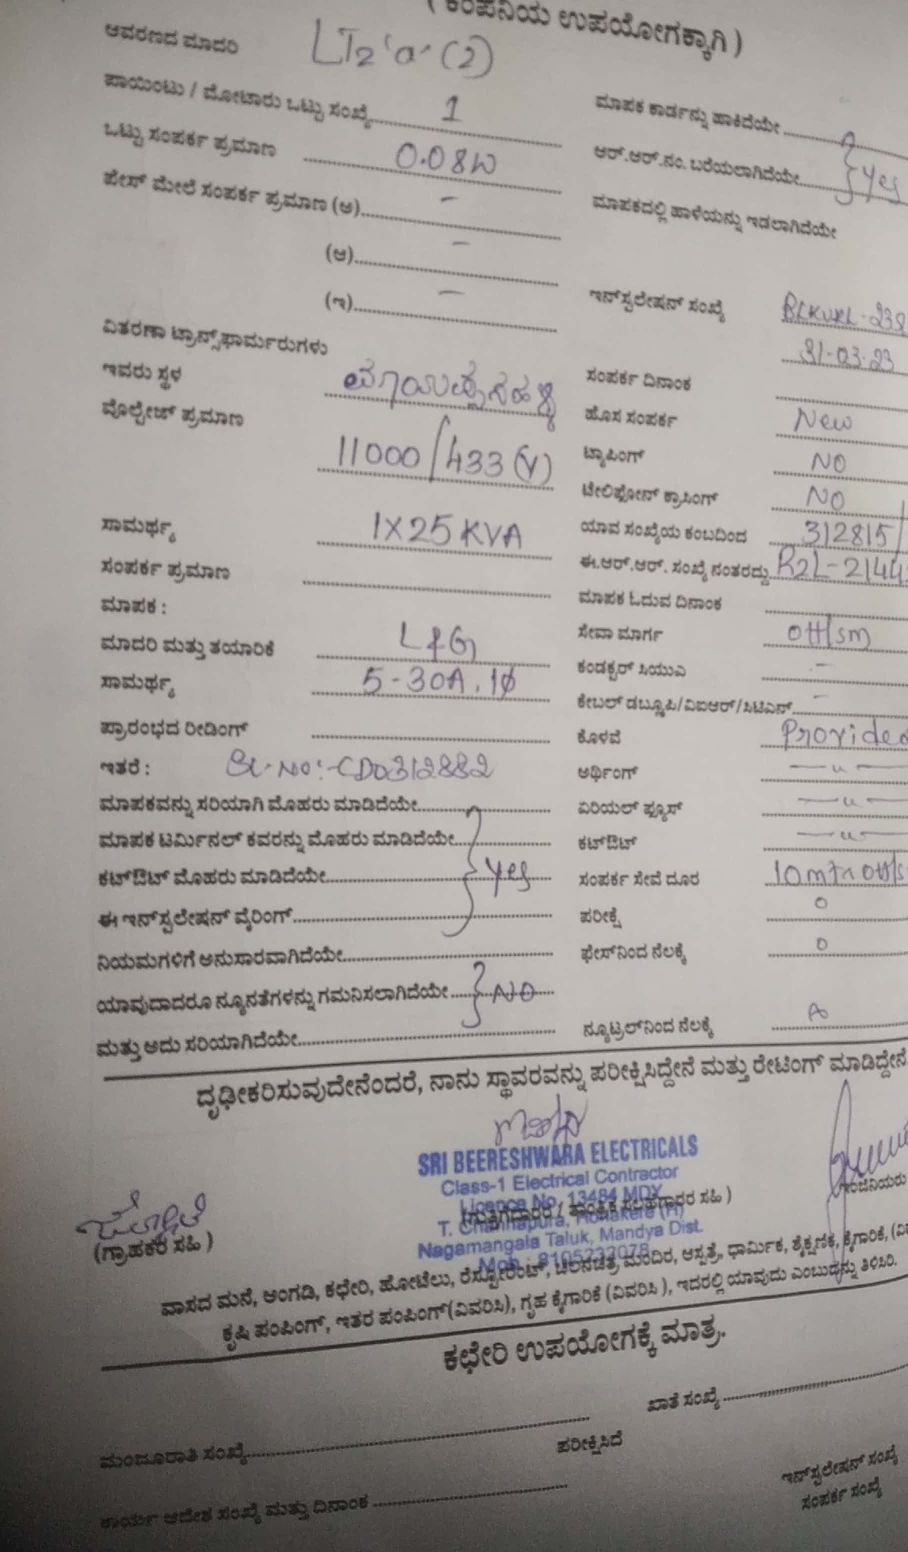 ( ಕಂಪನಿಯ ಉಪಯೋಗಕ್ಕಾಗಿ )
ಆವರಣದ ಮಾದರಿ LT2 'a' (2)
ಪಾಯಿಂಟು / ಮೋಟಾರು ಒಟ್ಟು ಸಂಖ್ಯೆ 1
ಮಾಪಕ ಕಾರ್ಡನ್ನು ಹಾಕಿದೆಯೇ
ಒಟ್ಟು ಸಂಪರ್ಕ ಪ್ರಮಾಣ 0.08W
ಆರ್.ಆರ್.ನಂ. ಬರೆಯಲಾಗಿದೆಯೇ Yes
ಪೇಸ್ ಮೇಲೆ ಸಂಪರ್ಕ ಪ್ರಮಾಣ (ಅ) -
ಮಾಪಕದಲ್ಲಿ ಹಾಳೆಯನ್ನು ಇಡಲಾಗಿದೆಯೇ
(ಆ) -
(ಇ) -
ಇನ್‌ಸ್ಟಲೇಷನ್ ಸಂಖ್ಯೆ
31-03-23
ವಿತರಣಾ ಟ್ರಾನ್ಸ್‌ಫಾರ್ಮರುಗಳು
ಇವರು ಸ್ಥಳ
ಸಂಪರ್ಕ ದಿನಾಂಕ
ವೊಲ್ಟೇಜ್ ಪ್ರಮಾಣ 11000/433 (V)
ಹೊಸ ಸಂಪರ್ಕ New
ಟ್ಯಾಪಿಂಗ್ NO
ಟೇಲಿಫೋನ್ ಕ್ರಾಸಿಂಗ್ NO
ಸಾಮರ್ಥ್ಯ 1X25 KVA
ಯಾವ ಸಂಖ್ಯೆಯ ಕಂಬದಿಂದ
ಸಂಪರ್ಕ ಪ್ರಮಾಣ
ಈ.ಆರ್.ಆರ್. ಸಂಖ್ಯೆ ನಂತರದ್ದು
ಮಾಪಕ :
ಮಾಪಕ ಓದುವ ದಿನಾಂಕ
ಮಾದರಿ ಮತ್ತು ತಯಾರಿಕೆ L&G
ಸೇವಾ ಮಾರ್ಗ OH/SM
ಸಾಮರ್ಥ್ಯ 5-30A, 1ϕ
ಕಂಡಕ್ಟರ್ ಸಿಯುಎ -
ಕೇಬಲ್ ಡಬ್ಲೂಪಿ/ವಿಐಆರ್/ಸಿಟಿಎಸ್ -
ಪ್ರಾರಂಭದ ರೀಡಿಂಗ್
ಕೊಳವೆ Provided
ಇತರೆ : Sl.No:-CD0312882
ಅರ್ಥಿಂಗ್ —u—
ಮಾಪಕವನ್ನು ಸರಿಯಾಗಿ ಮೊಹರು ಮಾಡಿದೆಯೇ
ಏರಿಯಲ್ ಫ್ಯೂಸ್ —u—
ಮಾಪಕ ಟರ್ಮಿನಲ್ ಕವರನ್ನು ಮೊಹರು ಮಾಡಿದೆಯೇ
ಕಟ್‌ಔಟ್ —u—
ಕಟ್‌ಔಟ್ ಮೊಹರು ಮಾಡಿದೆಯೇ Yes
ಸಂಪರ್ಕ ಸೇವೆ ದೂರ
ಈ ಇನ್‌ಸ್ಟಲೇಷನ್ ವೈರಿಂಗ್
ಪರೀಕ್ಷೆ 0
ನಿಯಮಗಳಿಗೆ ಅನುಸಾರವಾಗಿದೆಯೇ
ಫೇಸ್‌ನಿಂದ ನೆಲಕ್ಕೆ 0
ಯಾವುದಾದರೂ ನ್ಯೂನತೆಗಳನ್ನು ಗಮನಿಸಲಾಗಿದೆಯೇ NO
ಮತ್ತು ಅದು ಸರಿಯಾಗಿದೆಯೇ
ನ್ಯೂಟ್ರಲ್‌ನಿಂದ ನೆಲಕ್ಕೆ
ದೃಢೀಕರಿಸುವುದೇನೆಂದರೆ, ನಾನು ಸ್ಥಾವರವನ್ನು ಪರೀಕ್ಷಿಸಿದ್ದೇನೆ ಮತ್ತು ರೇಟಿಂಗ್ ಮಾಡಿದ್ದೇನೆ
SRI BEERESHWARA ELECTRICALS
Class-1 Electrical Contractor
Licence No. 13484 MDX
T. Channapura, Honakere (H)
Nagamangala Taluk, Mandya Dist.
Mob : 8105233078
(ಗ್ರಾಹಕರ ಸಹಿ )
ವಾಸದ ಮನೆ, ಅಂಗಡಿ, ಕಛೇರಿ, ಹೋಟೆಲು, ರೆಸ್ಟೋರೆಂಟ್, ಚಲನಚಿತ್ರ ಮಂದಿರ, ಆಸ್ಪತ್ರೆ, ಧಾರ್ಮಿಕ, ಶೈಕ್ಷಣಿಕ, ಕೈಗಾರಿಕೆ,
ಕೃಷಿ ಪಂಪಿಂಗ್, ಇತರ ಪಂಪಿಂಗ್(ವಿವರಿಸಿ), ಗೃಹ ಕೈಗಾರಿಕೆ (ವಿವರಿಸಿ ), ಇದರಲ್ಲಿ ಯಾವುದು ಎಂಬುದನ್ನು ತಿಳಿಸಿರಿ.
ಕಛೇರಿ ಉಪಯೋಗಕ್ಕೆ ಮಾತ್ರ.
ಖಾತೆ ಸಂಖ್ಯೆ
ಮಂಜೂರಾತಿ ಸಂಖ್ಯೆ
ಪರೀಕ್ಷಿಸಿದೆ
ಕಾರ್ಯ ಆದೇಶ ಸಂಖ್ಯೆ ಮತ್ತು ದಿನಾಂಕ
ಇನ್‌ಸ್ಟಲೇಷನ್ ಸಂಖ್ಯೆ
ಸಂಪರ್ಕ ಸಂಖ್ಯೆ